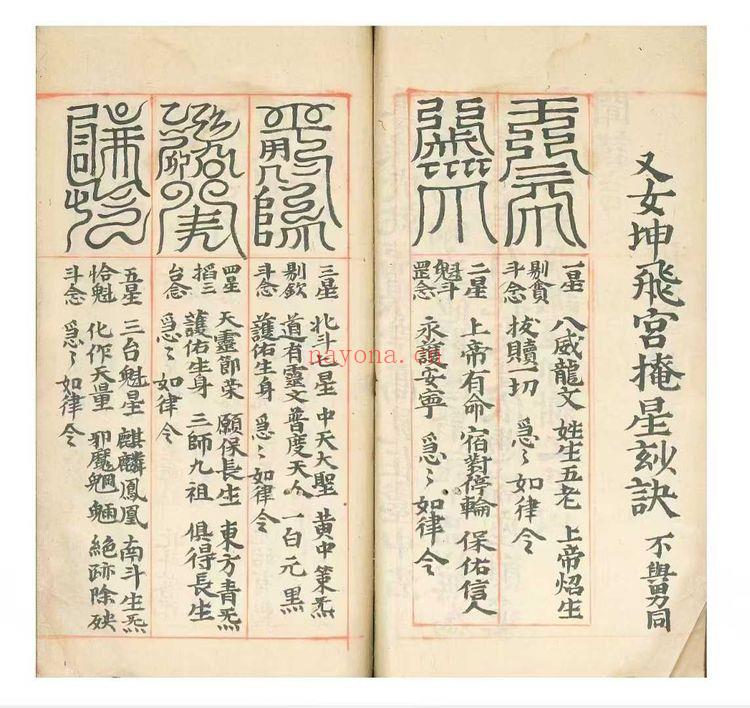 又女坤飛宮掩星玅訣 不與男同
一星 八威龍文 姓生五老 上帝炤生
剔貪
斗念 拔贖一切 急々如律令
二星 上帝有命 宿對停輪 保佑信人
魁斗
罡念 永護安寧 急々如律令
三星 北斗七星 中天大聖 黄中策炁
剔欽 道有靈文普度天人 一百元黑
斗念 護佑生身 急々如律令
四星 天靈節荣 願保長生 東方青炁
搯三 護佑生身 三師九祖 俱得長生
台念 急々如律令
五星 三台魁星 麒麟鳳凰 南斗生炁
恰魁 化作天量 邪魔魍魎 絶跡除殃
斗念 急々如律令
nayona.cn